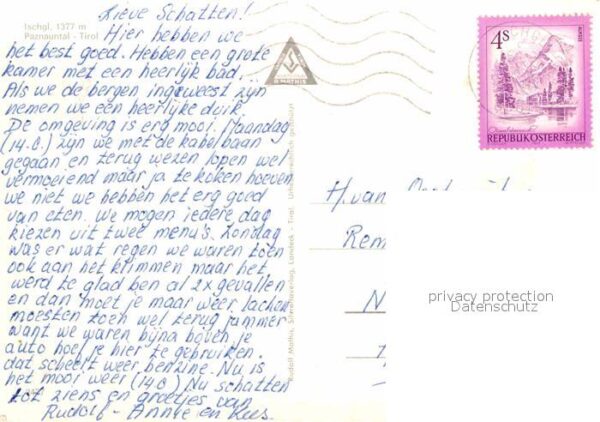 Ischgl, 1377 m
Paznauntal - Tirol
Lieve Schatten!
Hier hebben we
het best goed. Hebben een grote
kamer met een heerlijk bad.
Als we de bergen ingeweest zijn
nemen we een heerlijke duik
De omgeving is erg mooi. Maandag
(14.8.) zijn we met de kabelbaan
gegaan en terug wezen lopen wel
vermoeiend maar ja te koken hoeven
we niet we hebben het erg goed
van eten. We mogen iedere dag
kiezen uit twee menu's. Zondag
was er wat regen we waren toen
ook aan het klimmen maar het
werd te glad ben al 2x gevallen
en dan moet je maar weer lachen
moesten toen wel terug jammer
want we waren bijna boven je
auto hoef je hier te gebruiken.
dat scheelt weer benzine. Nu is
het mooi weer (14.8.) Nu schatten
tot ziens en groetjes van
Rudolf - Annie en Kees.
Rudolf Mathis, Landeck - Tirol.
R. MATHIS
4S
REPUBLIK ÖSTERREICH
H. van
Rem
N
privacy protection
Datenschutz